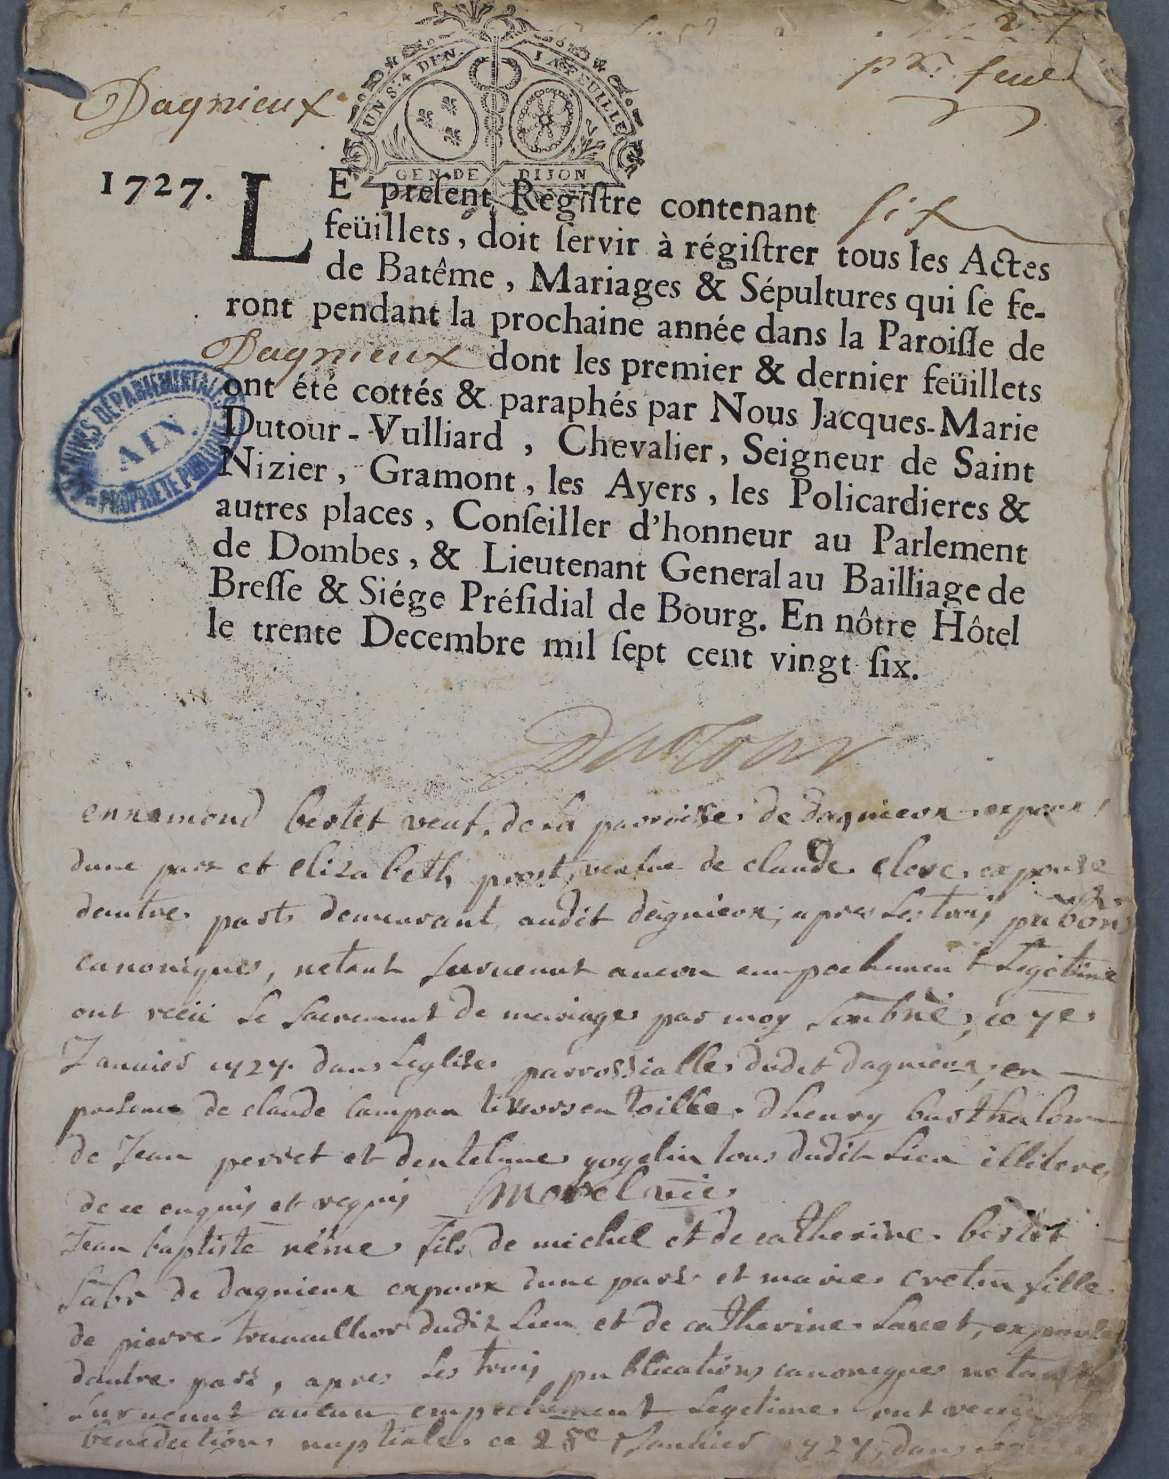 pr. feuil
Dagnieux
UN S. 4 DEN. LA FEUILLE
GEN. DE DIJON
1727.
LE preſent Régiſtre contenant ſix
feüillets, doit ſervir à régiſtrer tous les Actes
de Batême, Mariages & Sépultures qui ſe fe-
ront pendant la prochaine année dans la Paroiſſe de
Dagnieux dont les premier & dernier feüillets
ont été cottés & paraphés par Nous Jacques-Marie
Dutour-Vulliard, Chevalier, Seigneur de Saint
Nizier, Gramont, les Ayers, les Policardieres &
autres places, Conſeiller d'honneur au Parlement
de Dombes, & Lieutenant General au Bailliage de
Breſſe & Siége Préſidial de Bourg. En nôtre Hôtel
le trente Decembre mil ſept cent vingt ſix.
ARCHIVES DÉPARTEMENTALES
AIN
PROPRIÉTÉ PUBLIQUE
Dutour
ennemond bertet veuf de la parroisse de dagnieux expoux
dune part et elizabeth prost veufve de claude clerc expouse
dautre part demeurant audit dagnieux, apres les trois pubons
canoniques, netant survenut aucun empechement legitime
ont receü le sacrement de mariage par moy ce 7e
Janvier 1727. dans leglise parrossialle dudit dagnieux, en
presence de claude campan en toille, dhenry barthalon
de Jean perret et dentelme gogelin tous dudit lieu illiteres
de ce enquis et requis Morel vic
Jean baptiste reme fils de michel et de catherine bertet
labr de dagnieux expoux dune part et marie cretin fille
de pierre travaillior dudit lieu et de catherine expouse
dautre part, apres les trois publications canoniques netant
survenut aucun empechement legitime ont receü
benediction nuptiale ce 28e Janvier 1727, dans